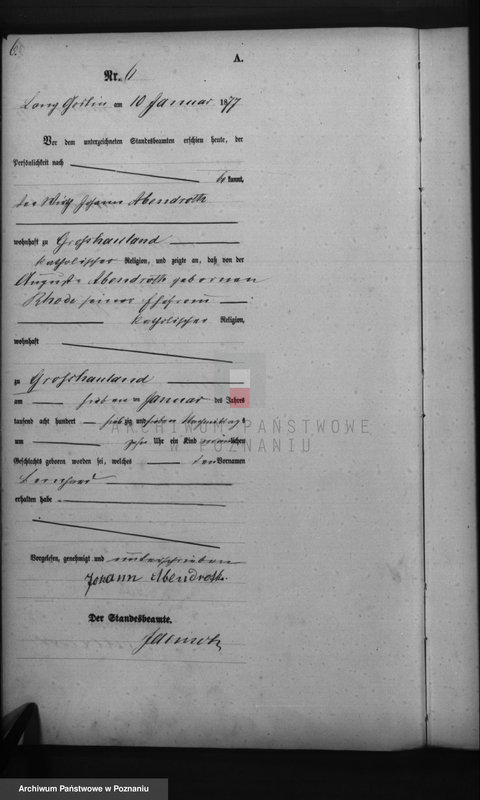 6.
A.
Nr. 6
Lang Goslin am 10 Januar 1877
Vor dem unterzeichneten Standesbeamten erschien heute, der
Persönlichkeit nach
bekannt,
der Wirth Johann Abendroth
wohnhaft zu Großhauland
katholischer Religion, und zeigte an, daß von der
Auguste Abendroth gebornen
Rhode seiner Ehefrau
katholischer Religion,
wohnhaft
zu Großhauland
am sieben ten Januar des Jahres
tausend acht hundert siebzig und sieben Nachmittags
um zehn Uhr ein Kind männlichen
Geschlechts geboren worden sei, welches den Vornamen
Bernhard
erhalten habe
Vorgelesen, genehmigt und unterschrieben
Johann Abendroth.
Der Standesbeamte.
ARCHIWUM PAŃSTWOWE
W POZNANIU
Archiwum Państwowe w Poznaniu